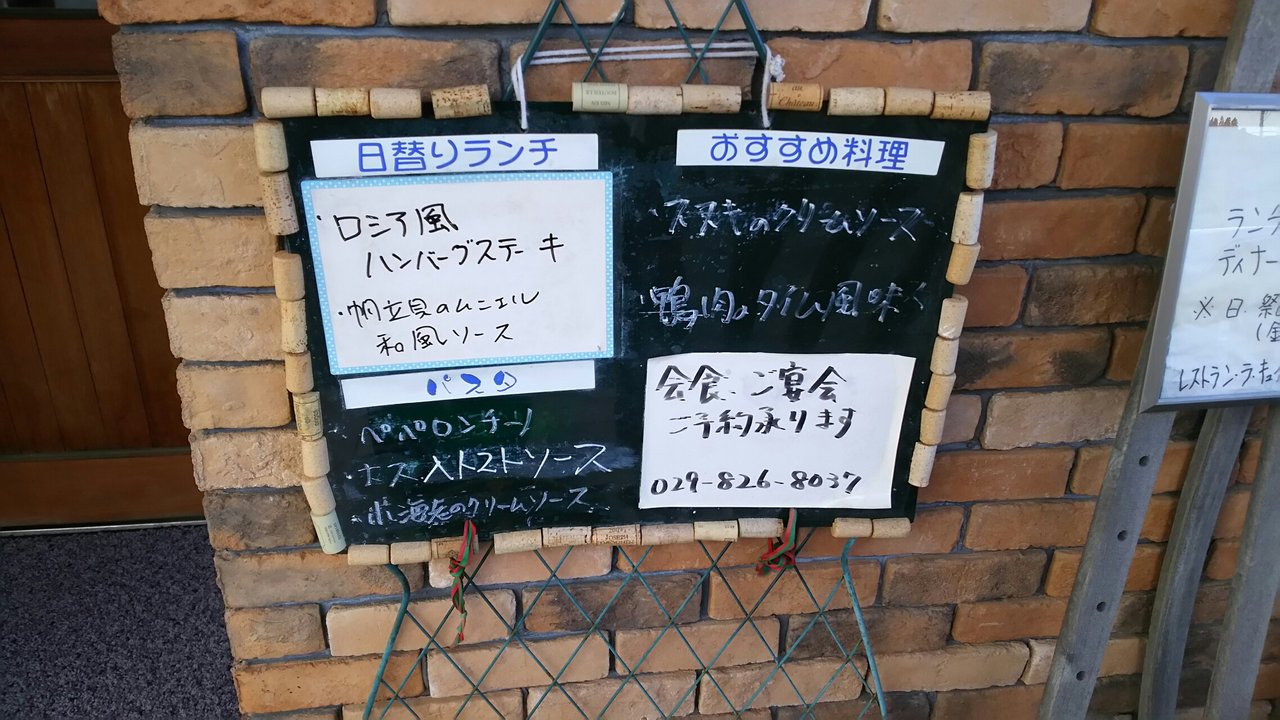 日替りランチ
・ロシア風
ハンバーグステーキ
・帆立貝のムニエル
和風ソース
パスタ
ペペロンチーノ
・ナス入トマトソース
小海老のクリームソース
おすすめ料理
・スズキのクリームソース
・鴨肉のタイム風味
会食、ご宴会
ご予約承ります
029-826-8037
ランチ
ディナー
※日.祭
レストラン・ラ・